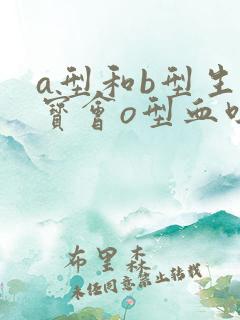 a型和b型生
寶會o型血
布里森
未经同意禁止转载